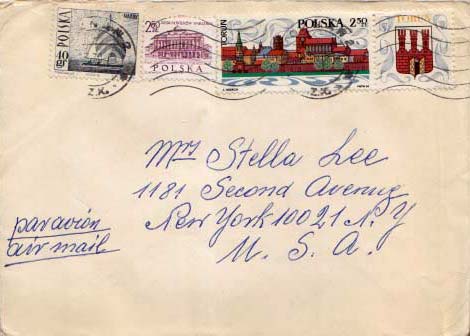 POLSKA
40 gr
2.50
POLSKA
TORUŃ
POLSKA 2.50
TORUŃ
Mrs Stella Lee
1181 Second Avenug
New York 10021 N.Y
U. S. A.
par avion
air mail